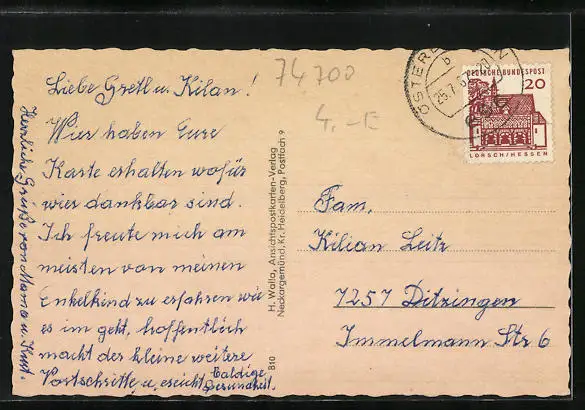 Liebe Gretl u. Kilan!
Wier haben Eure
Karte erhalten wofür
wier dankbar sind.
Ich freute mich am
meisten van meinen
Enkelkind zu erfahren wie
es im geht, hoffentlich
macht der kleine weitere
Vortschritte, u. euch
baldige
Gesundheit.
Herzliche Grüße von Mama u. Knut.
74 700
4.-€
H. Walla, Ansichtspostkarten-Verlag
Neckargemünd, Kr. Heidelberg, Postfach 9
B10
DEUTSCHE BUNDESPOST
20
LORSCH/HESSEN
b
25.7.
Fam.
Kilian Leitz
7257 Ditzingen
Immelmann Str 6